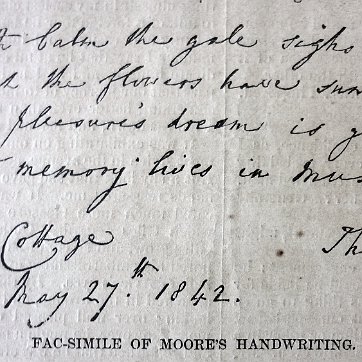 calm the gale sighs
the flowers have
pleasure's dream is
memory lives in
Cottage
May 27.th 1842.
FAC-SIMILE OF MOORE'S HANDWRITING.